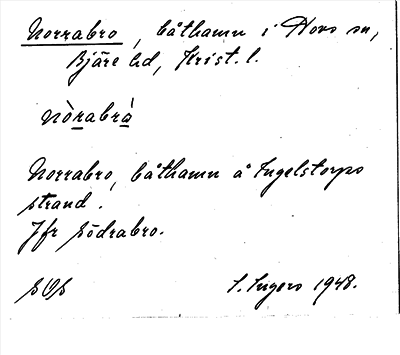 Norrabro, båthamn i Hovs sn,
Bjäre hd, Krist. l.
nòrabrò
Norrabro, båthamn å Ingelstorps
strand.
Jfr Södrabro.
SOS
S. Ingers 1948.